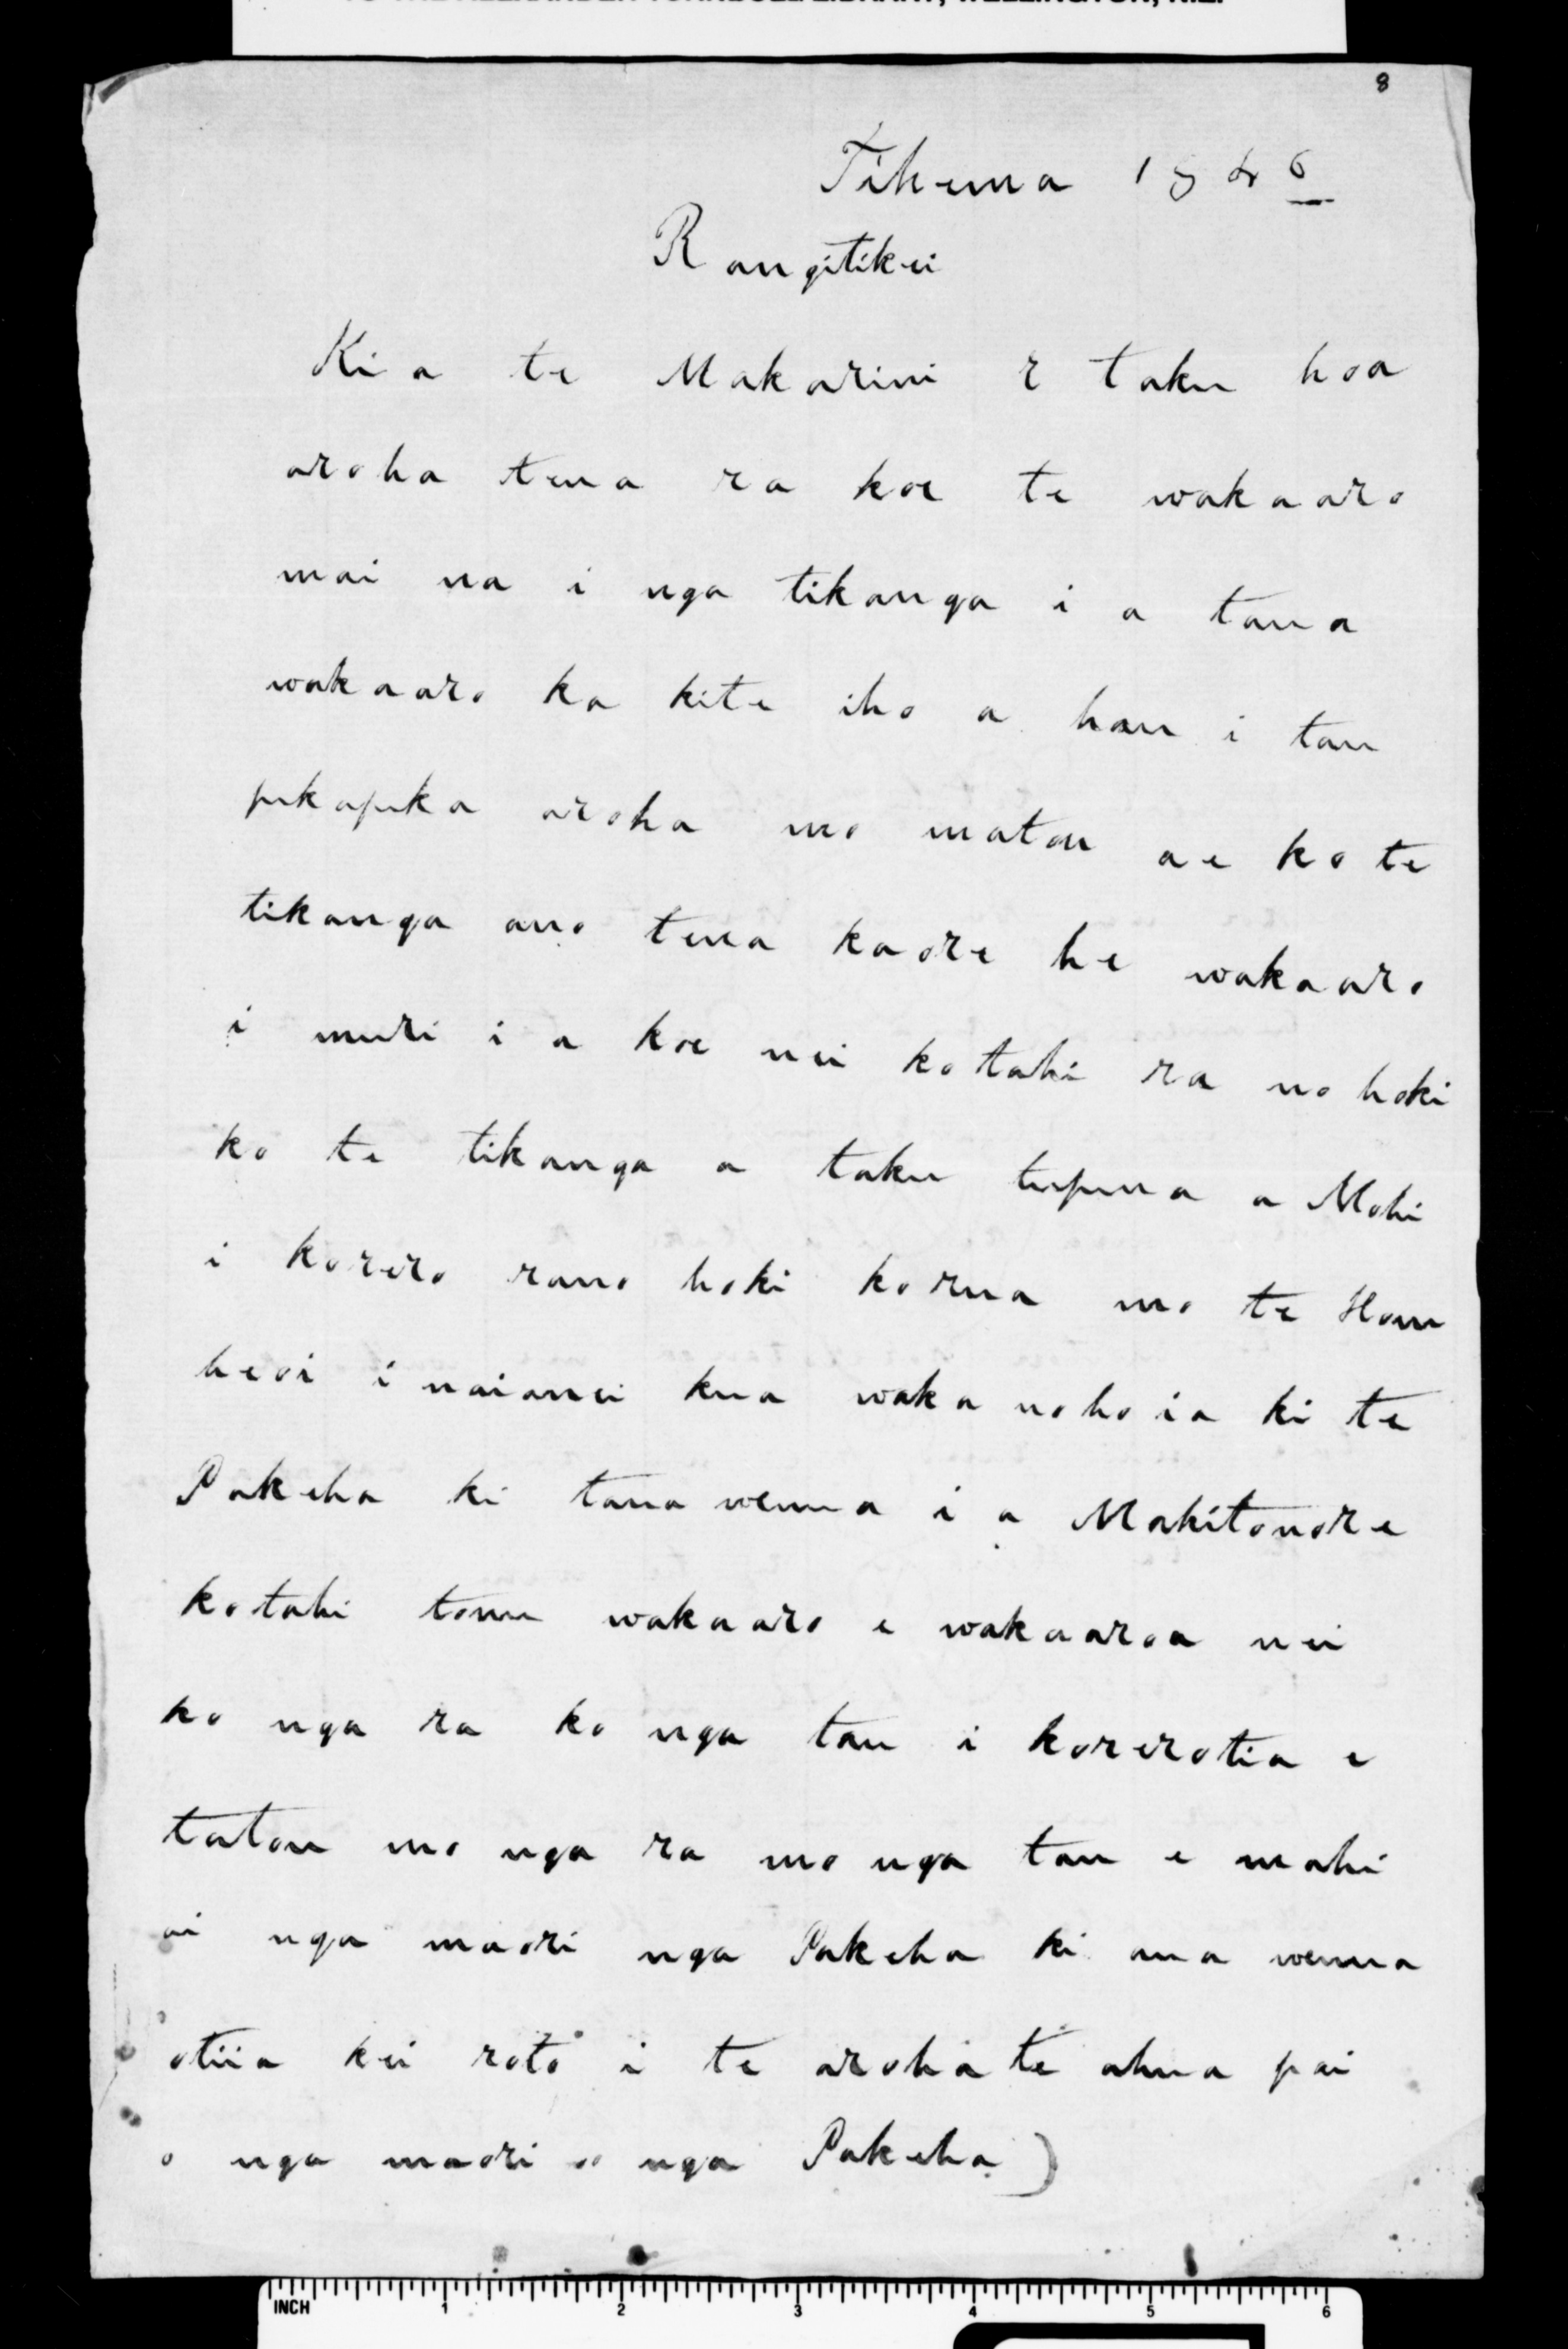 8
Tihema 1846
Rangitikei
Ki a te Makarini e taku hoa
aroha tena ra koe te wakaaro
mai na i nga tikanga i a taua
wakaaro ka kite iho a hau i tau
pukapuka aroha mo matou ae ko te
tikanga ano tena kaore he wakaaro
i muri i a koe nei kotahi ra no hoki
ko te tikanga a taku tupuna a Mohi
i korero rano hoki korua mo te Hou
heoi i naianei kua waka nohoia ki te
Pakeha ki tana wenua i a Makitonore
kotahi tonu wakaaro e wakaaroa nei
ko nga ra ko nga tau i korerotia e
tatou mo nga ra mo nga tau e mahi
ai nga maori nga Pakeha ki ana wenua
otiia kei roto i te aroha te ahua pai
o nga maori o nga Pakeha)
INCH 1 2 3 4 5 6